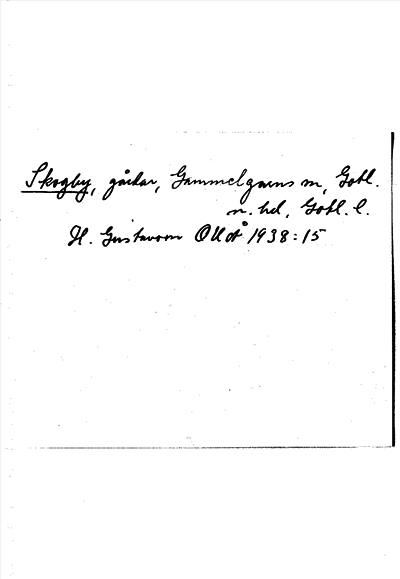 Skogby, gårdar, Gammelgarns sn, Gotl.
n. hd, Gotl. l.
H. Gustavson 1938:15